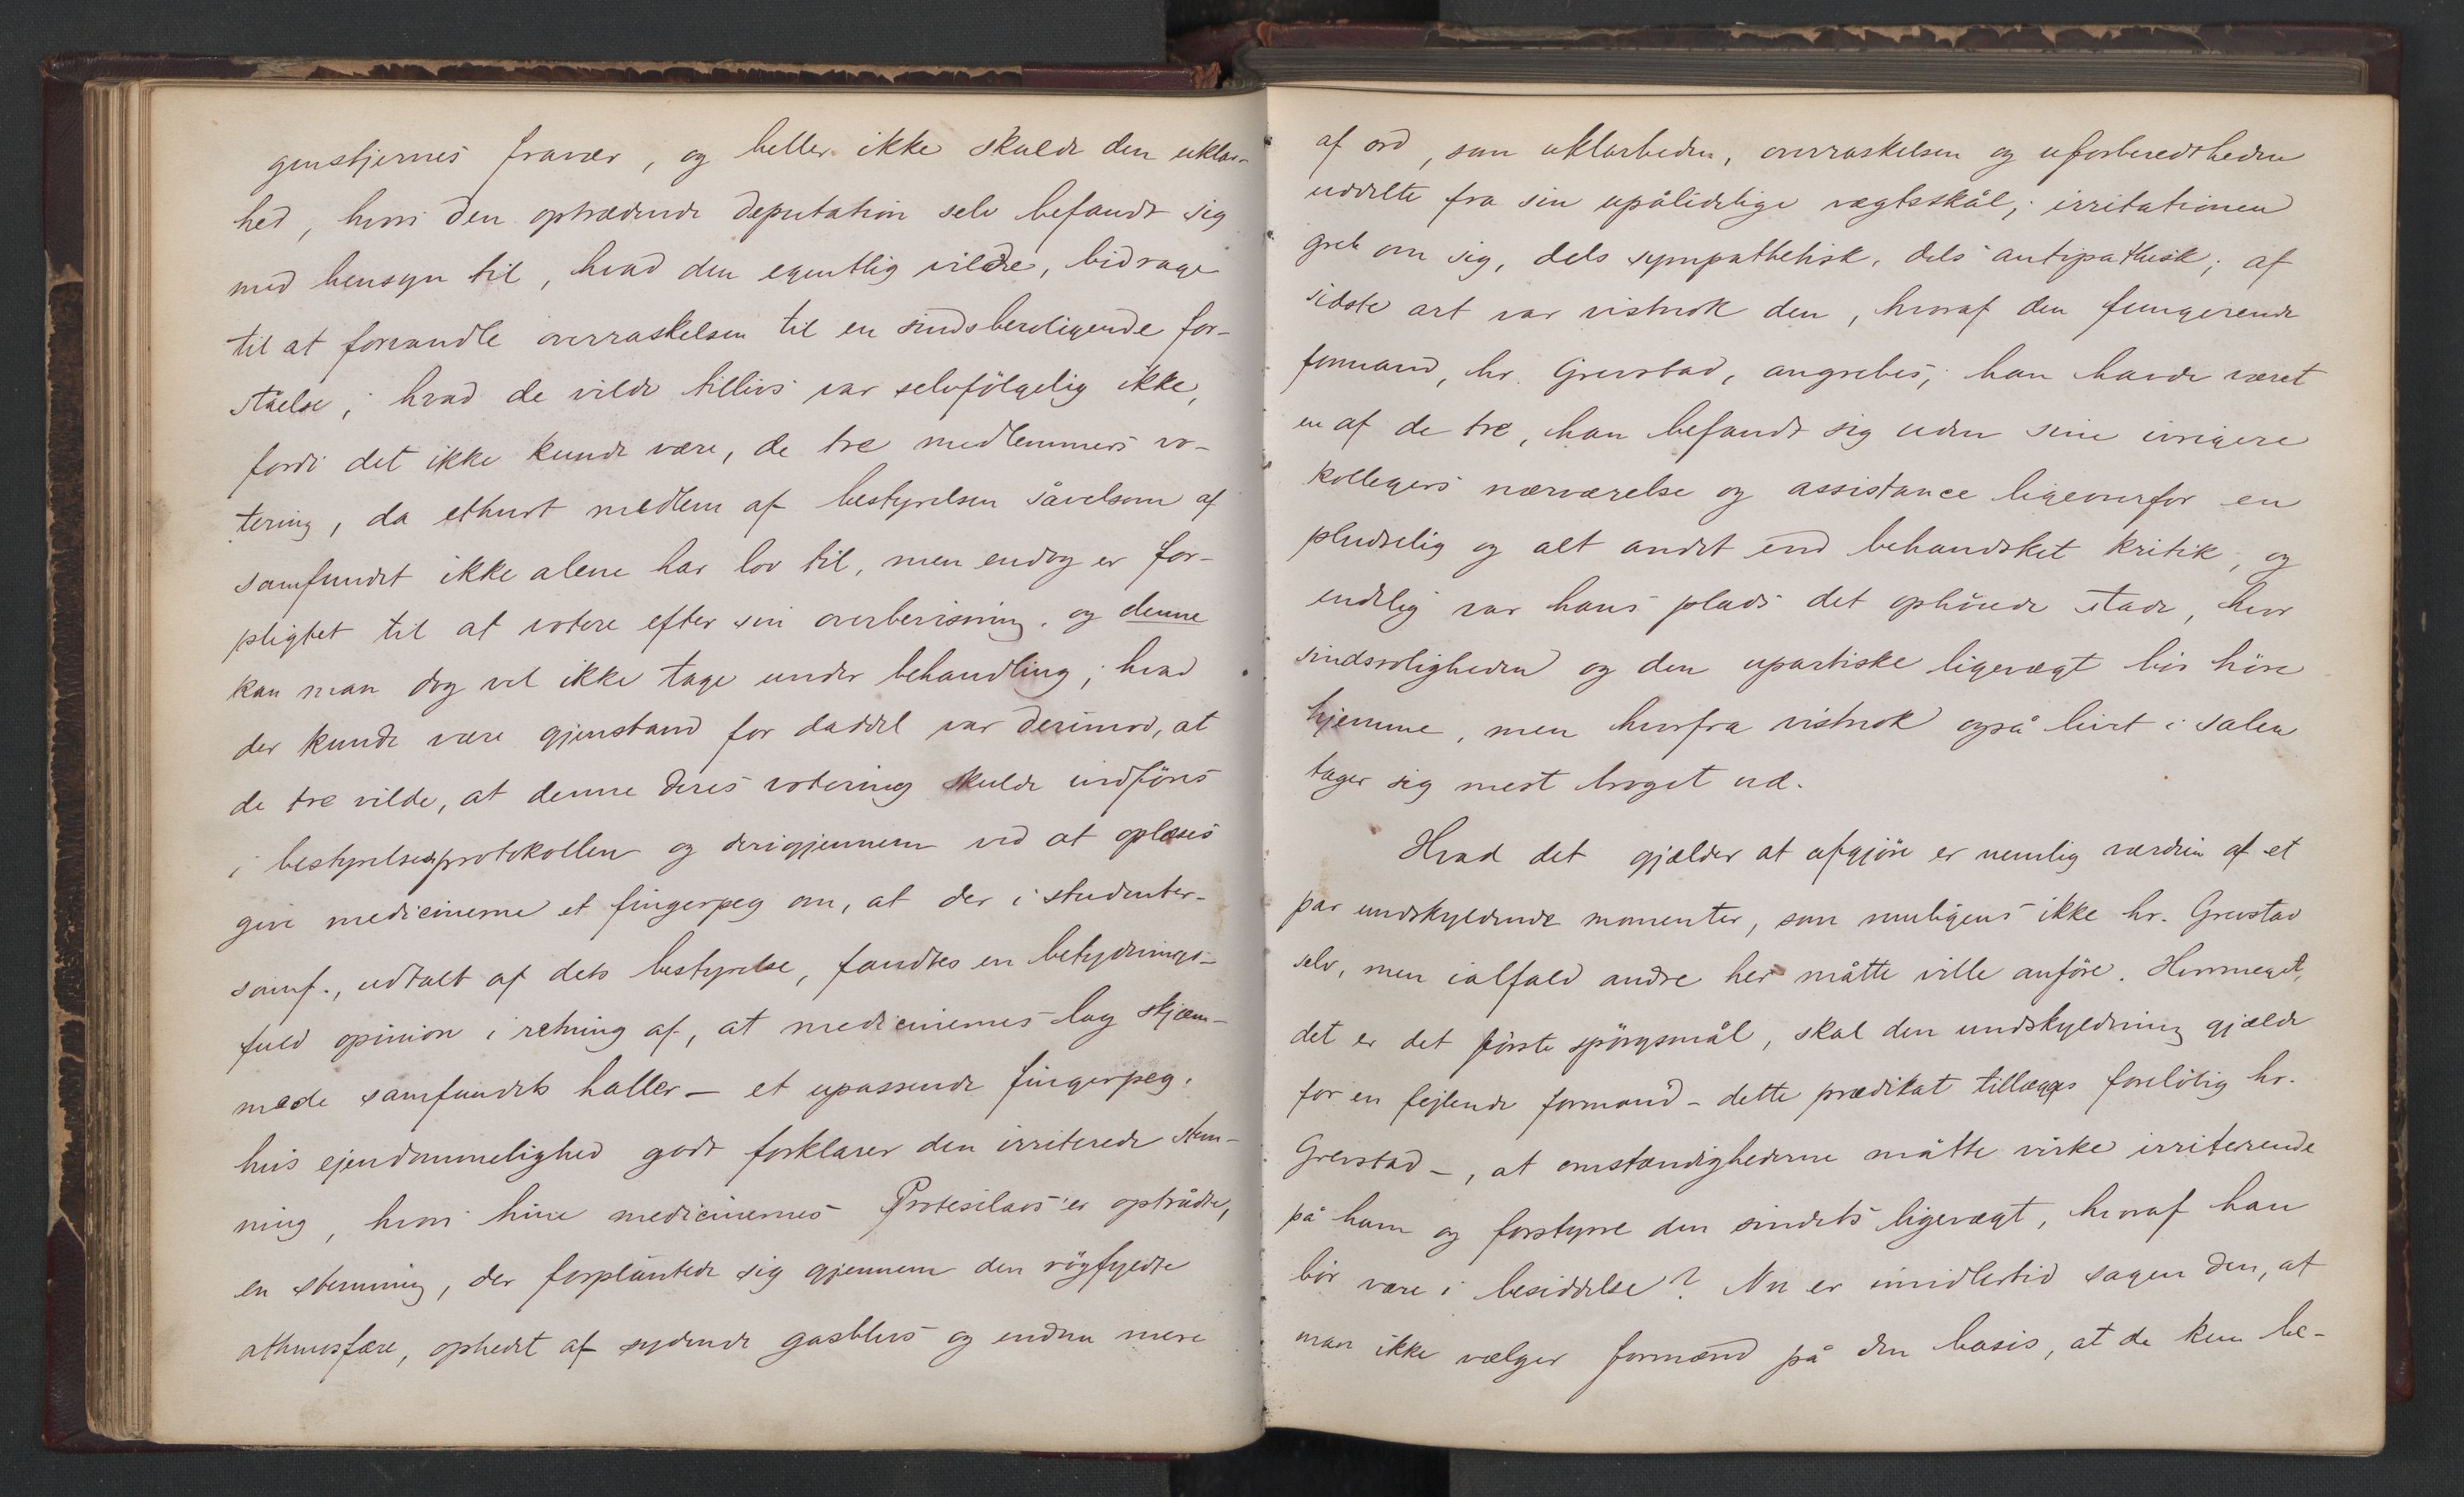 genstjernes fravær, og heller ikke skulde den uklar-
hed, hvori den optrædende deputation selv befandt sig
med hensyn til, hvad den egentlig vilde, bidrage
til at forvandle overraskelsen til en sindsberoligende for-
ståelse; hvad de vilde tillivs var selvfölgelig ikke,
fordi det ikke kunde være, de tre medlemmers vo-
tering, da ethvert medlem af bestyrelsen såvelsom af
samfundet ikke alene har lov til, men endog er for-
pligtet til at votere efter sin overbevisning, og denne
kan man dog vel ikke tage under behandling; hvad
der kunde være gjenstand for daddel var derimod, at
de tre vilde, at denne deres votering skulde indföres
i bestyrelsesprotokollen og derigjennem ved at oplæses
give medicinerne et fingerpeg om, at der i studenter-
samf., udtalt af dets bestyrelse, fandtes en betydnings-
fuld opinion i retning af, at medicinernes lag skjæm-
mede samfundets haller – et upassende fingerpeg,
hvis ejendommelighed godt forklarer den irriterede stem-
ning, hvori hine medicinernes Protesilaos'er optrådte,
en stemning, der forplantede sig gjennem den rögfyldte
athmosfære, ophedet af sydende gasblus og endnu mere
af ord, som uklarheden, overraskelsen og uforberedtheden
uddelte fra sin upålidelige vægtskål; irritationen
greb om sig, dels sympathetisk, dels antipathisk; af
sidste art var vistnok den, hvoraf den fungerende
formand, hr. Grevstad, angrebes; han havde været
en af de tre, han befandt sig uden sine ivrigere
kollegers nærværelse og assistance ligeoverfor en
pludselig og alt andet end behandsket kritik, og
endelig var hans plads det ophöiede stade, hvor
sindsroligheden og den upartiske ligevægt bör höre
hjemme, men hvorfra vistnok også livet i salen
tager sig mest broget ud.
Hvad det gjælder at afgjöre er nemlig værdien af et
par undskyldende momenter, som muligens ikke hr. Grevstad
selv, men ialfald andre her måtte ville anföre. Hvormeget,
det er det förste spörgsmål, skal den undskyldning gjælde
for en fejlende formand – dette prædikat tillægges forelöbig hr.
Grevstad –, at omstændighederne måtte virke irriterende
på ham og forstyrre den sindets ligevægt, hvoraf han
bör være i besiddelse? Nu er imidlertid sagen den, at
man ikke vælger formænd på den basis, at de kun be-